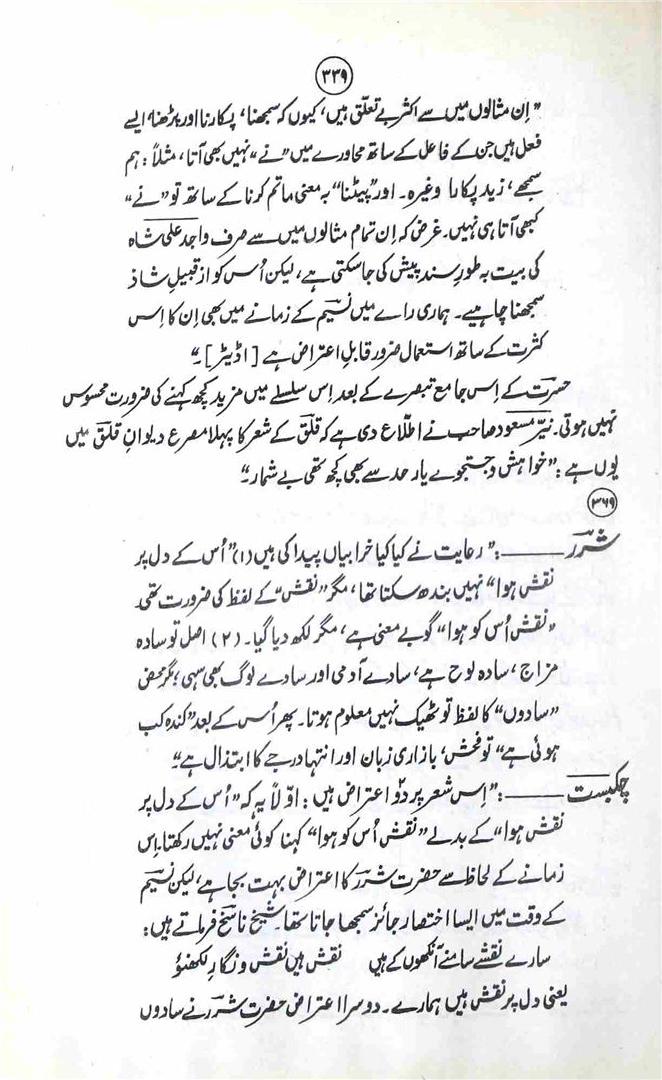 ۳۳۹
"اِن مثالوں میں سے اکثر بے تعلّق ہیں، کیوں کہ سمجھنا، پکارنا اور پڑھنا ایسے
فعل ہیں جن کے فاعل کے ساتھ محاورے میں "نے" نہیں بھی آتا، مثلاً: ہم
سمجھے، زید پکارا وغیرہ۔ اور "پیٹنا" بہ معنی ماتم کرنا کے ساتھ تو "نے"
کبھی آتا ہی نہیں۔ غرض کہ اِن تمام مثالوں میں سے صرف واجد علی شاہ
کی بیت بہ طورِ سند پیش کی جا سکتی ہے، لیکن اُس کو از قبیلِ شاذ
سمجھنا چاہیے۔ ہماری راے میں نسیمؔ کے زمانے میں بھی اِن کا اِس
کثرت کے ساتھ استعمال ضرور قابلِ اعتراض ہے [اڈیٹر]۔"
حسرتؔ کے اِس جامع تبصرے کے بعد اِس سلسلے میں مزید کچھ کہنے کی ضرورت محسوس
نہیں ہوتی۔ نیّر مسعود صاحب نے اطّلاع دی ہے کہ قلقؔ کے شعر کا پہلا مصرع دیوانِ قلقؔ میں
یوں ہے: "خواہش و جستجوے یار حد سے بھی کچھ تھی بے شمار۔"
۳۶۹
شررؔ ــــــــ: "رعایت نے کیا کیا خرابیاں پیدا کی ہیں (۱) "اُس کے دل پر
نقش ہوا" نہیں بندھ سکتا تھا، مگر "نقش" کے لفظ کی ضرورت تھی
"نقش اُس کو ہوا" گو بے معنی ہے، مگر لکھ دیا گیا۔ (۲) اصل تو سادہ
مزاج، سادہ لوح ہے، سادے آدمی اور سادے لوگ بھی سہی؛ مگر محض
"سادوں" کا لفظ تو ٹھیک نہیں معلوم ہوتا۔ پھر اُس کے بعد "کندہ کب
ہوئی ہے" تو فحش، بازاری زبان اور انتہا درجے کا ابتذال ہے"
چکبستؔ ــــــــ: "اِس شعر پر دوؔ اعتراض ہیں: اوّلاً یہ کہ "اُس کے دل پر
نقش ہوا" کے بدلے "نقش اُس کو ہوا" کہنا کوئی معنی نہیں رکھتا۔ اِس
زمانے کے لحاظ سے حضرت شررؔ کا اعتراض بہت بجا ہے، لیکن نسیمؔ
کے وقت میں ایسا اختصار جائز سمجھا جاتا تھا۔ شیخ ناسخؔ فرماتے ہیں:
سارے نقشے سامنے آنکھوں کے ہیں نقش ہیں نقش و نگارِ لکھنؤ
یعنی دل پر نقش ہیں ہمارے۔ دوسرا اعتراض حضرت شررؔ نے سادوں